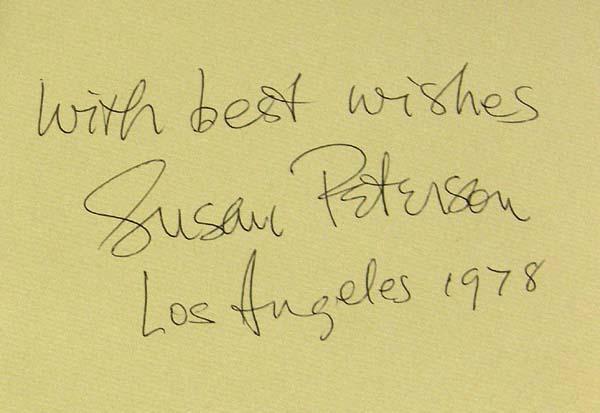 with best wishes
Susan Peterson
Los Angeles 1978